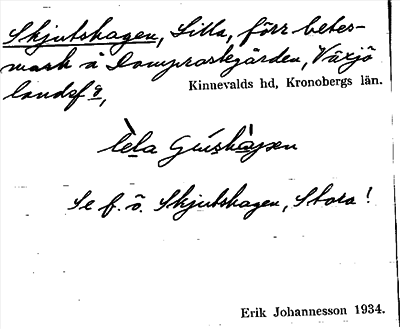 Skjutshagen, Lilla, förr betes-
mark å Domprostegården, Växjö
landsf g,
Kinnevalds hd, Kronobergs län.
Se f. ö. Skjutshagen, Stora!
Erik Johannesson 1934.